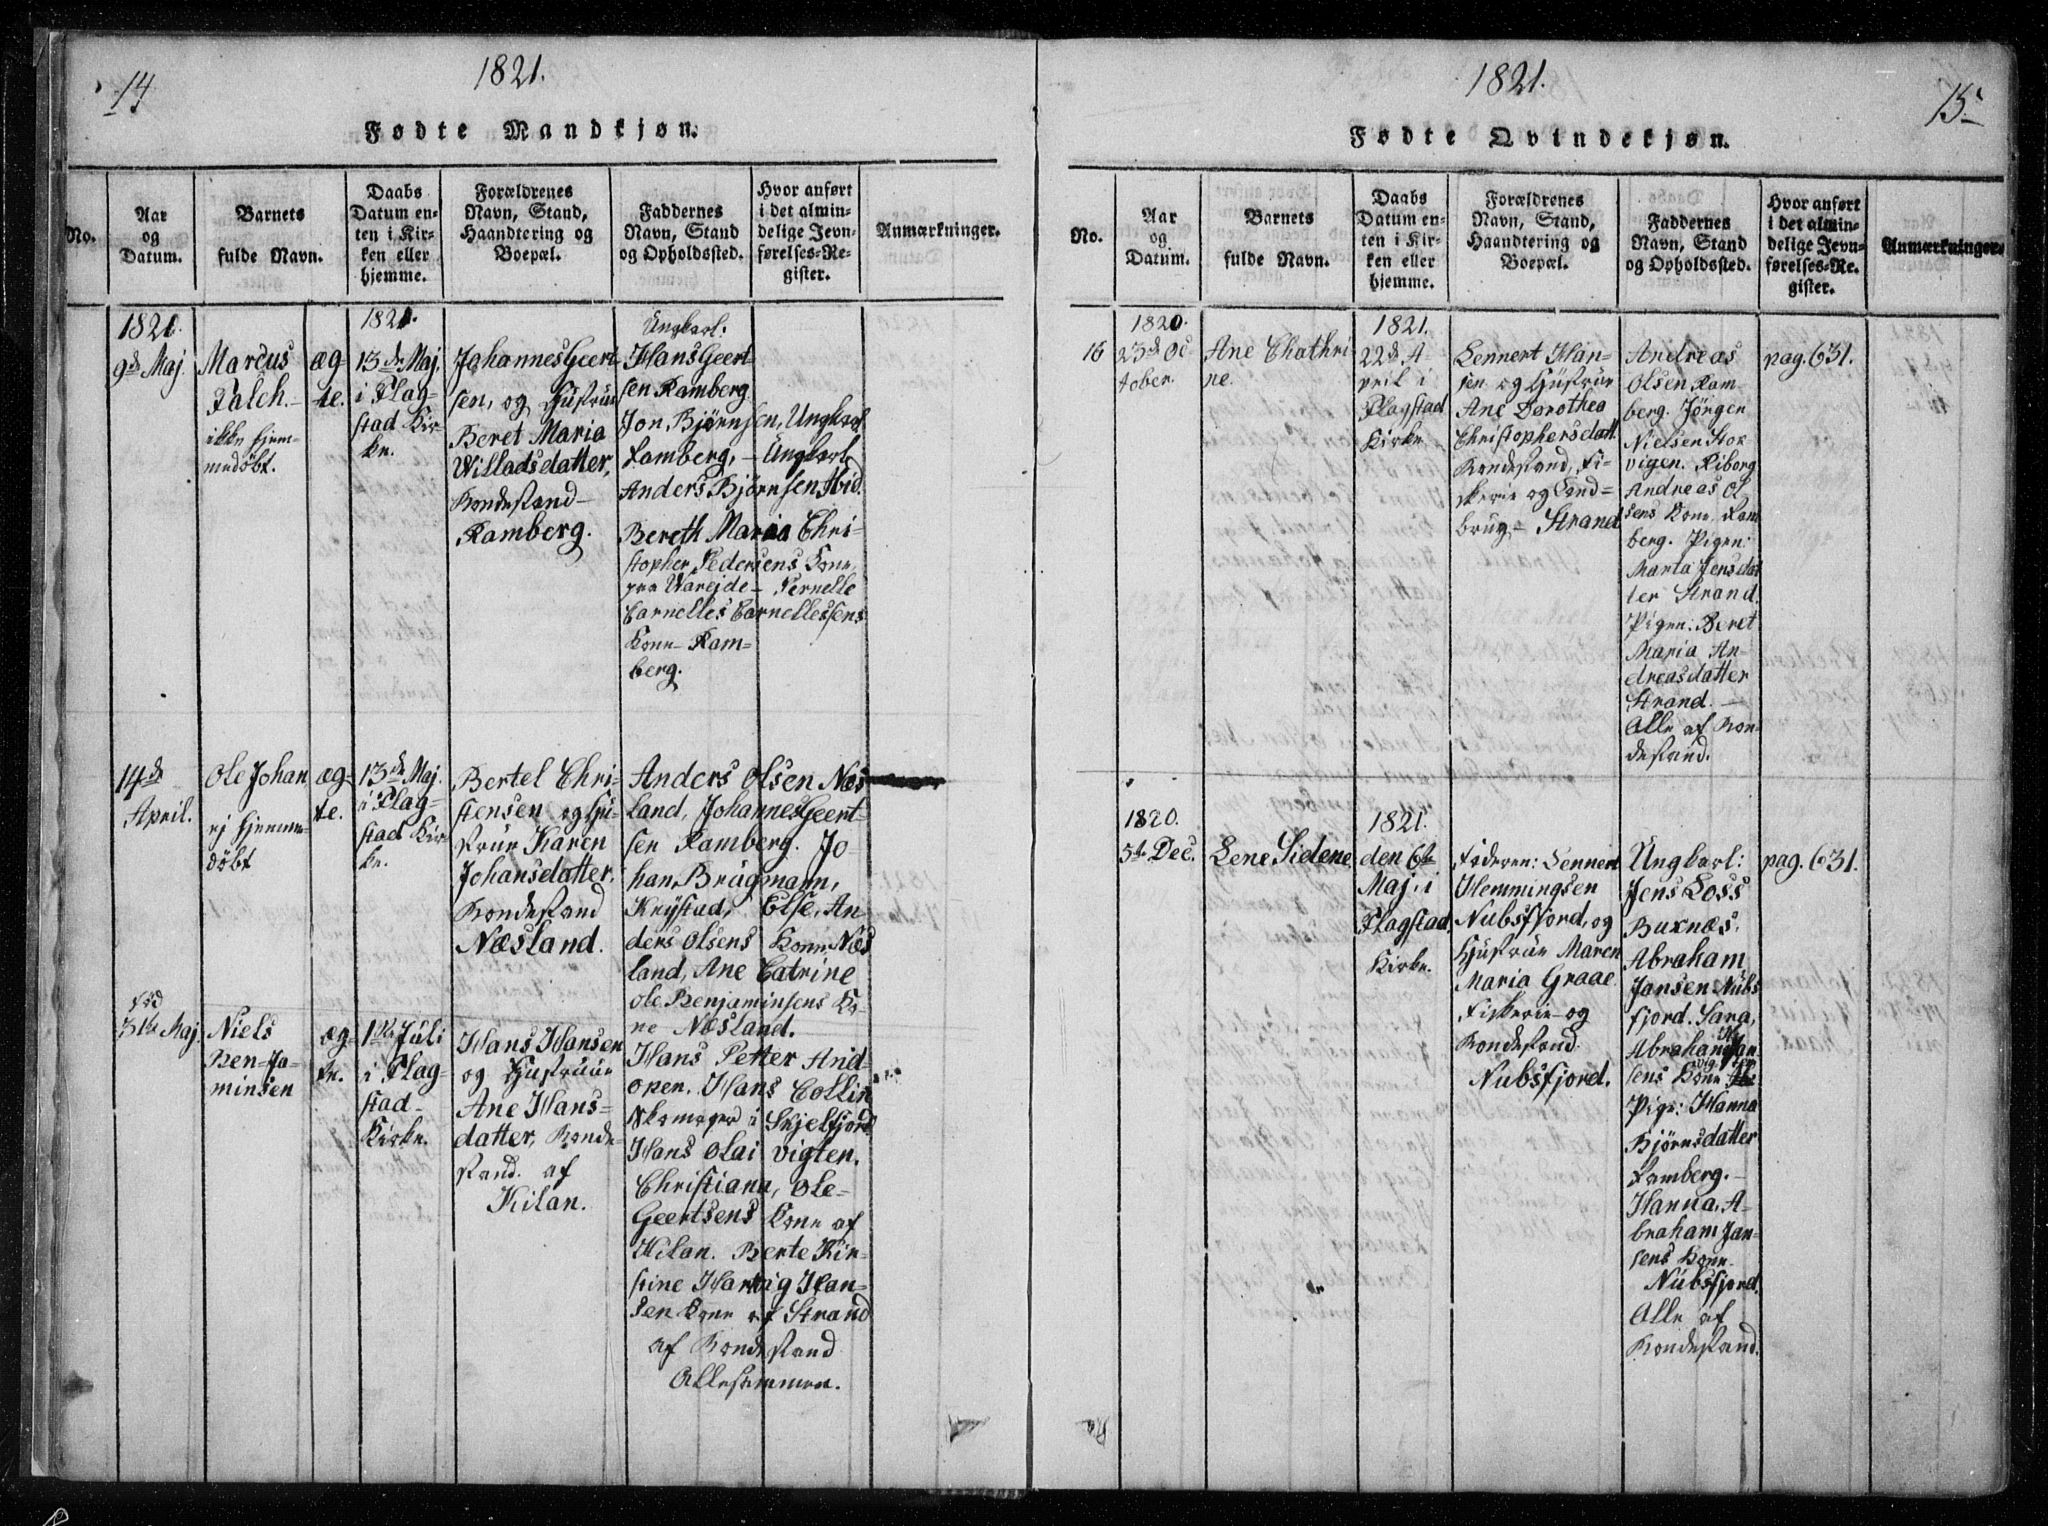 14
1821.
Fødte Mandkjøn.
No.
Aar
og
Datum.
Barnets
fulde Navn.
Daabs
Datum en-
ten i Kir-
ken eller
hjemme.
Forældrenes
Navn, Stand,
Haandtering og
Boepæl.
Faddernes
Navn, Stand
og Opholdssted.
Hvor anført
i det almin-
delige Jevn-
førelses-Re-
gister.
Anmærkninger.
1821.
9de Maj.
Marcus
Falch.
ikke hjem-
medøbt.
æg-
te.
1821.
13de Maj.
i Flag-
stad Kir-
ke.
Johannes Geert
sen, og Hustrue
Beret Maria
Willadsdatter,
Bondestand
Ramberg.
Ungkarl.
Hans Geert
sen Ramberg
Jon Bjørnsen, Ungkarl
Ramberg, – Ungkarl
Anders Bjørnsen Ibid
Bereth Maria Chri-
stopher Pedersens Kone
paa Vareide – Pernelle
Cornelles Cornellessens
Kone Ram-
berg.
14de
April.
Ole Johan
ej hjemme-
døbt
æg-
te.
13de Maj.
i Flag-
stad Kir-
ke.
Bertel Chri-
stensen og Hu-
strue Karen
Johansdatter.
Bondestand
Næsland.
Anders Olsen Næs
land, Johannes Geert-
sen Ramberg. Jo-
han Brugmann,
Krystad, Else, An-
ders Olsens Kone, Næs
land, Ane Catrine
Ole Benjaminsens Ko-
ne Næsland.
fød
31te Maj.
Niels
Ben-Ja-
minsen
æg-
te.
1ste Juli
i Flag
stad-
Kirke.
Hans Hansen
og Hustrue
Ane Hans-
datter, Bonde-
stand. af
Kilan.
Hans Petter And-
open. Hans Collin
Skomager i Skjelfjord
Hans Olai Vigten.
Christiana, Ole
Geertsens Kone af
Kilan. Berte Kir-
stine Hartvig Han-
sen Kone af Strand
af Bondestand
Allesammen.
15.
1821.
Fødte Qvindekjøn.
No.
Aar
og
Datum.
Barnets
fulde Navn.
Daabs
Datum en-
ten i Kir-
ken eller
hjemme.
Forældrenes
Navn, Stand,
Haandtering og
Boepæl.
Faddernes
Navn, Stand
og Opholdssted.
Hvor anført
i det almin-
delige Jevn-
førelses-Re-
gister.
Anmærkninger.
16
1820.
23de Oc
tober.
Ane Chathri
ne.
1821.
22de A-
pril i
Flagstad
Kirke
Lennert Han-
sen og Hustrue
Ane Dorothea
Christophersdatt.
Bondestand, Fi-
skerie og Jord-
brug – Strand
Andreas
Olsen Ram
berg. Jørgen
Nielsen Stor
vigen. Riborg
Andreas Ol
sens Kone, Ram
berg. Pigen:
Marta Jensdat
ter Strand.
Pigen: Beret
Maria An-
dreasdatter
Strand. –
Alle af Bon-
destand.
pag. 631.
1820.
5te Dec.
Lene Sidene
1821.
den 6te
Maj. i
Flagstad
Kirke.
Faderen: Lennert
Hemmingsen
Nubsfjord, og
Hustrue Maren
Maria Graae
Fiskerie og
Bondestand.
Nubsfjord.
Ungkarl:
Jens Loss
Buxnæs.
Abraham
Jansen Nubs
fjord. Sara,
Abraham Jan
sens Kone
Pige: Hanna
Bjørnsdatter
Ramberg. –
Hanna, A-
braham Jan-
sens Kone
Nubsfjord.
Alle af
Bondestand.
pag. 631.